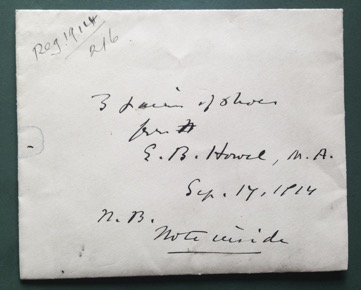 Reg. 1914
216
3 pairs of shoes
from
E. B. Howel, M.A.
Sep. 17, 1914
N.B.
Note inside